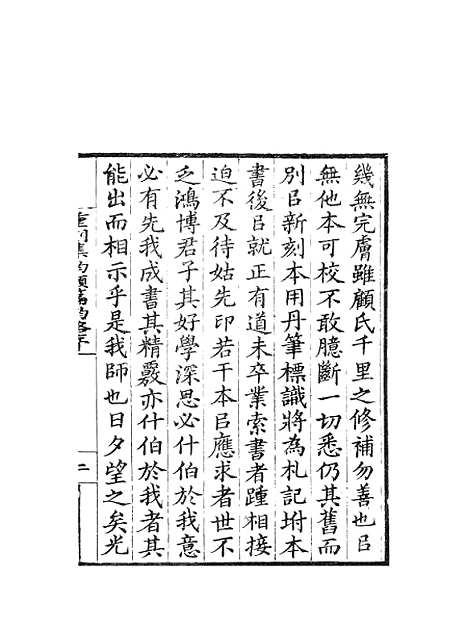 幾無完膚雖顧氏千里之修補勿善也㠯
無他本可校不敢臆斷一切悉仍其舊而
別㠯新刻本用丹筆標識將為札記坿本
書後㠯就正有道未卒業索書者踵相接
迫不及待姑先印若干本㠯應求者世不
乏鴻博君子其好學深思必什伯於我意
必有先我成書其精覈亦什伯於我者其
能出而相示乎是我師也日夕望之矣光
重刊集韵類篇韵序
二